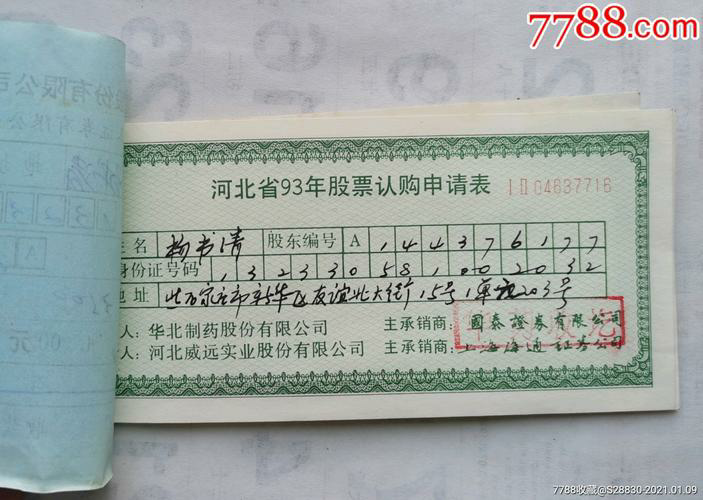 7788.com
份有限公司
河北省93年股票认购申请表 04637716
名 杨书清 股东编号 A 144376177
身份证号码 132330581002032
地址 石家庄市新华区友谊北大街15号1单元203号
人：华北制药股份有限公司 主承销商：國泰證券有限公司
人：河北威远实业股份有限公司 主承销商：上海海通证券公司
7788收藏@S28830-2021.01.09